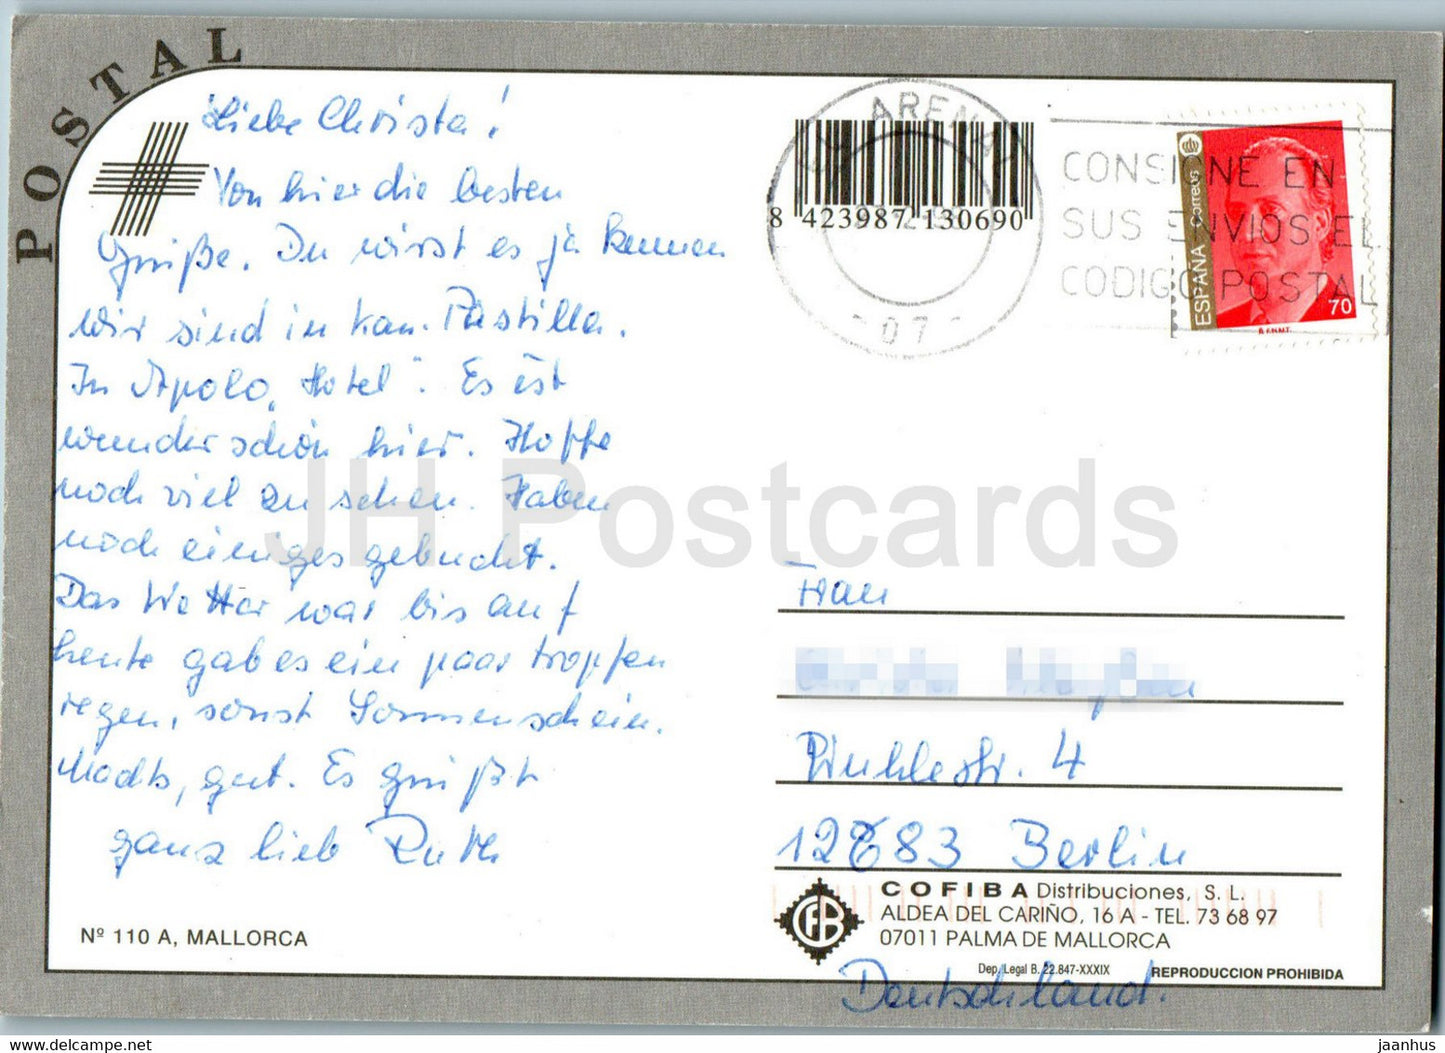 POSTAL
Liebe Christa!
Von hier die besten
Grüße. Du wirst es ja kennen
wir sind in kan. Pastilla.
In Apolo "Hotel". Es ist
wunderschön hier. Hoffe
noch viel zu sehen. Haben
noch einiges gebucht.
Das Wetter war bis auf
heute gab es ein paar tropfen
regen, sonst Sonnenschein.
Machts, gut. Es grüßt
ganz lieb Ruth
Nº 110 A, MALLORCA
8 423987 130690
ARENAL
-07-
CONSIGNE EN
SUS ENVIOS EL
CODIGO POSTAL
ESPAÑA Correos
70
R.F.N.M.T.
JH Postcards
Frau
4
12683 Berlin
COFIBA Distribuciones, S. L.
ALDEA DEL CARIÑO, 16 A - TEL. 73 68 97
07011 PALMA DE MALLORCA
CFB
Dep. Legal B. 22.847-XXXIX
REPRODUCCION PROHIBIDA
Deutschland.
www.delcampe.net
jaanhus